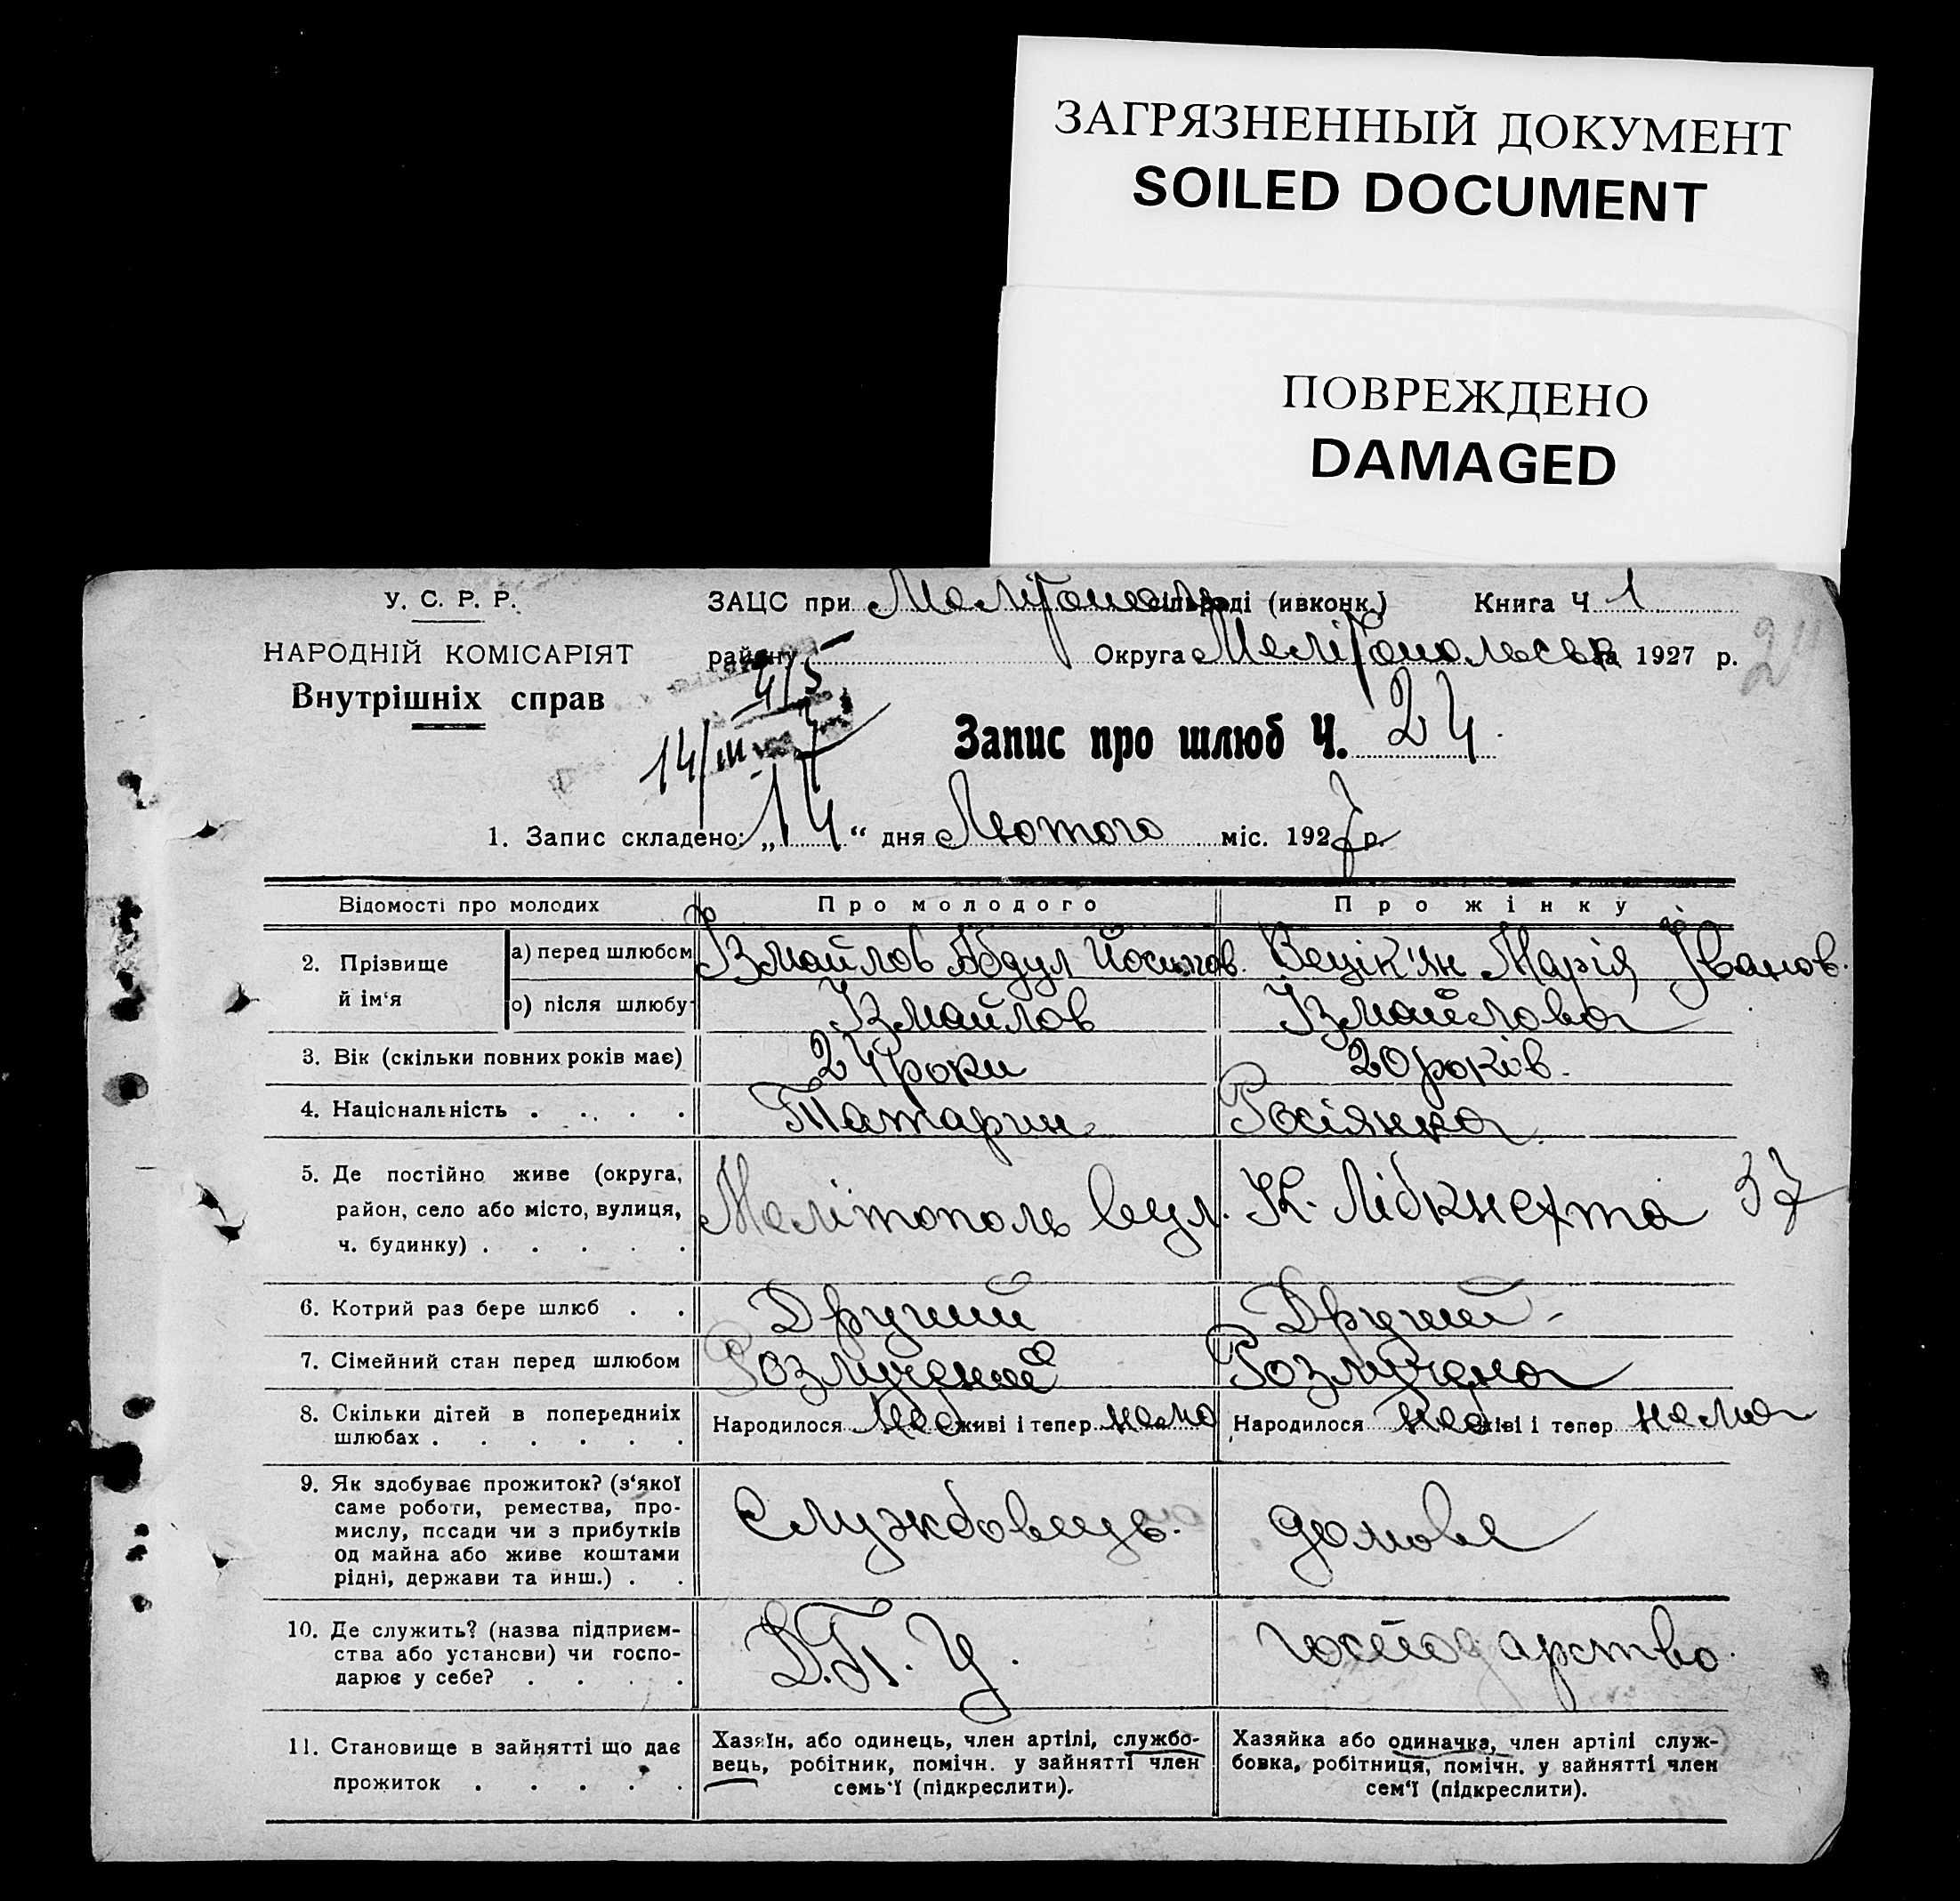 ЗАГРЯЗНЕННЫЙ ДОКУМЕНТ
SOILED DOCUMENT
ПОВРЕЖДЕНО
DAMAGED
У. С. Р. Р.
НАРОДНІЙ КОМІСАРІЯТ
Внутрішніх справ
ЗАЦС при сільраді (ивконк.) Книга Ч 1
району Округа Мелітопольська 1927 р.
24
415
14/III
Запис про шлюб Ч. 24.
1. Запис складено: „14“ дня Лютого міс. 1927 р.
Відомості про молодих Про молодого Про жінку
2. Прізвище й ім‘я
а) перед шлюбом Ізмайлов Абдул Йосипов. Марія Іванов.
о) після шлюбу Ізмайлов Ізмайлова
3. Вік (скільки повних років має) 24 роки 20 років.
4. Національність . . . . Татарин Росіянка
5. Де постійно живе (округа,
район, село або місто, вулиця,
ч. будинку) . . . . .
Мелітополь вул. К. Лібкнехта 37
6. Котрий раз бере шлюб . . Другий Другий
7. Сімейний стан перед шлюбом Розлучений Розлучена
8. Скільки дітей в попередниіх
шлюбах . . . . . .
Народилося живі і тепер нема Народилося живі і тепер нема
9. Як здобуває прожиток? (з‘якої
саме роботи, ремества, про-
мислу, посади чи з прибутків
од майна або живе коштами
рідні, держави та инш.) . .
Службовець. домове
10. Де служить? (назва підприєм-
ства або установи) чи госпо-
дарює у себе? . . . .
Д.П.У. господарство.
11. Становище в зайнятті що дає
прожиток . . . . .
Хазяїн, або одинець, член артілі, службо-
вець, робітник, помічн. у зайнятті член
семь‘ї (підкреслити).
Хазяйка або одиначка, член артілі служ-
бовка, робітниця, помічн. у зайнятті член
сем‘ї (підкреслити).